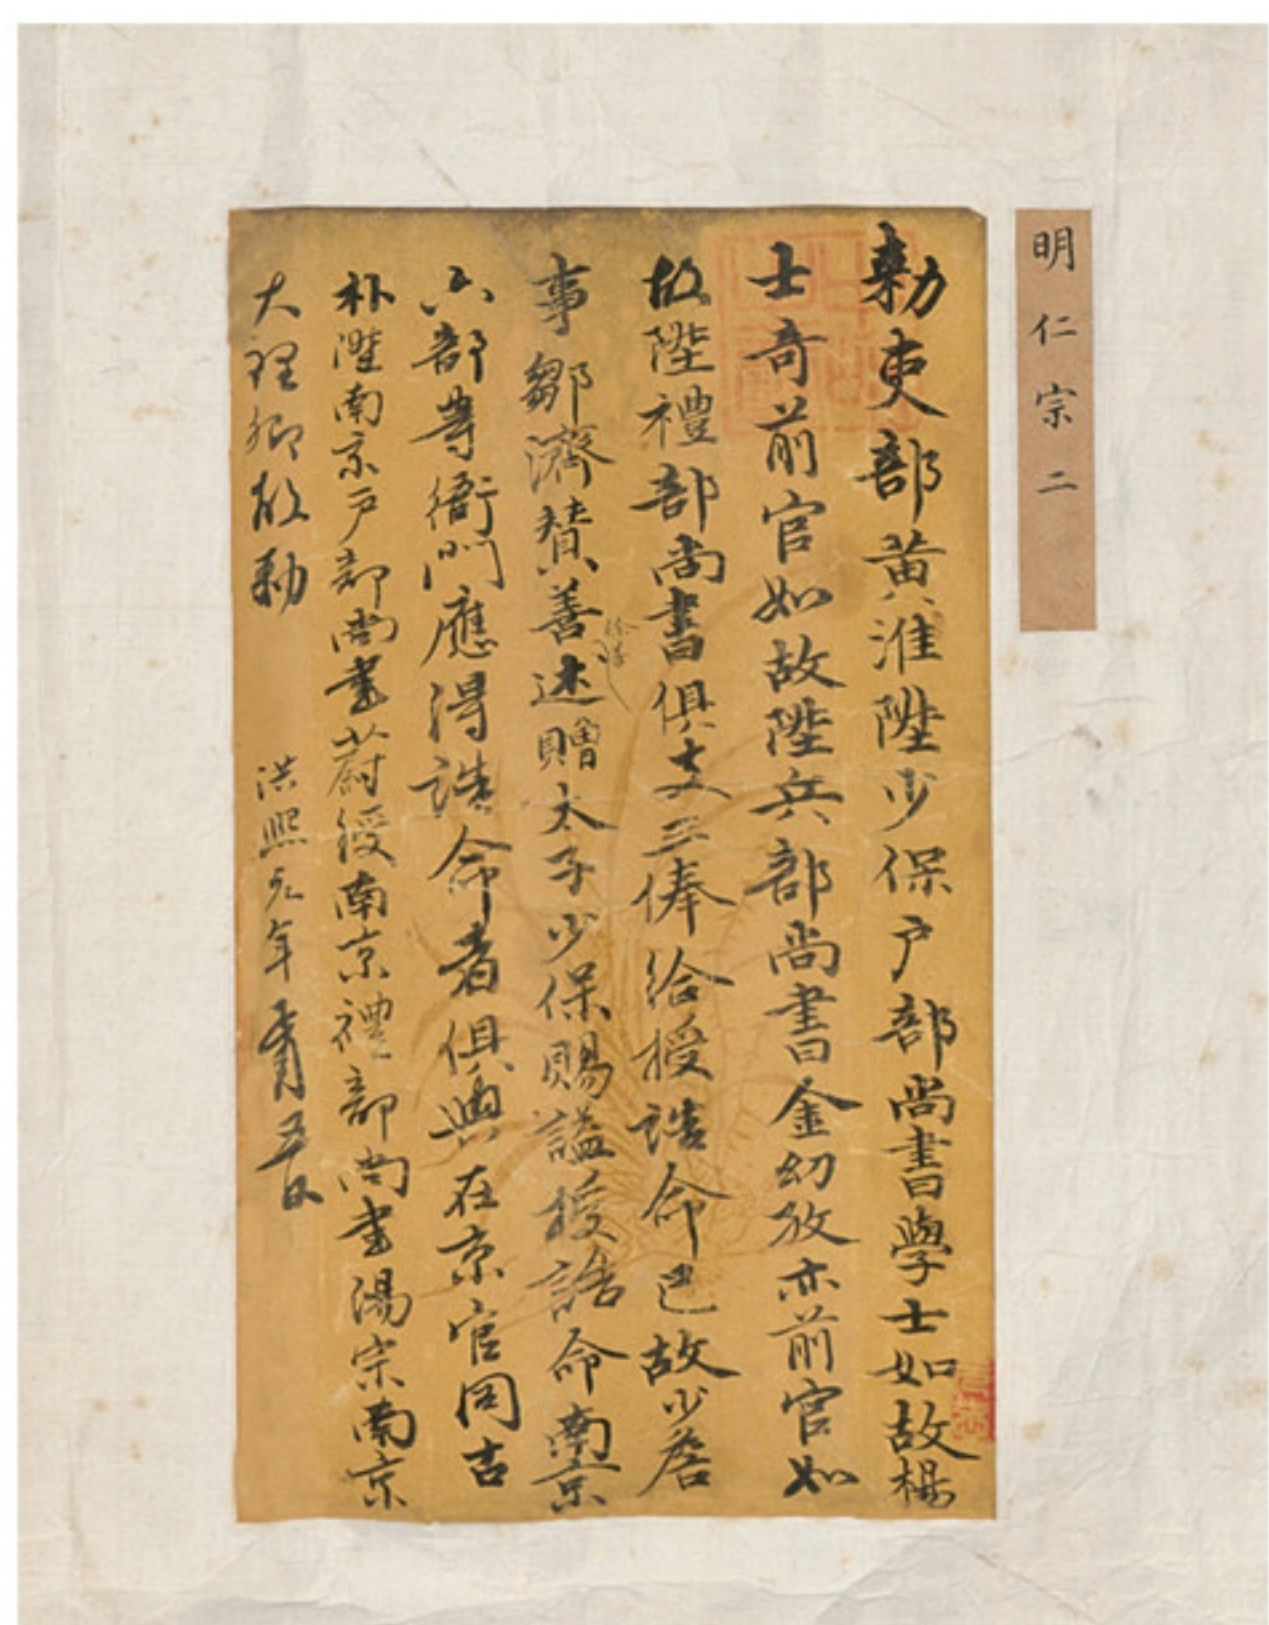 明仁宗二
勅吏部黄淮陞少保戶部尚書學士如故楊
士奇前官如故陞兵部尚書金幼孜亦前官如
故陞禮部尚書俱支三俸給授誥命已故少詹
事鄒濟贊善述贈太子少保賜謚授誥命南京
徐善
六部等衙門應得誥命者俱與在京官同古
朴陞南京戶部尚書蔚綬南京禮部尚書湯宗南京
大理卿故勅
洪熙元年正月五日